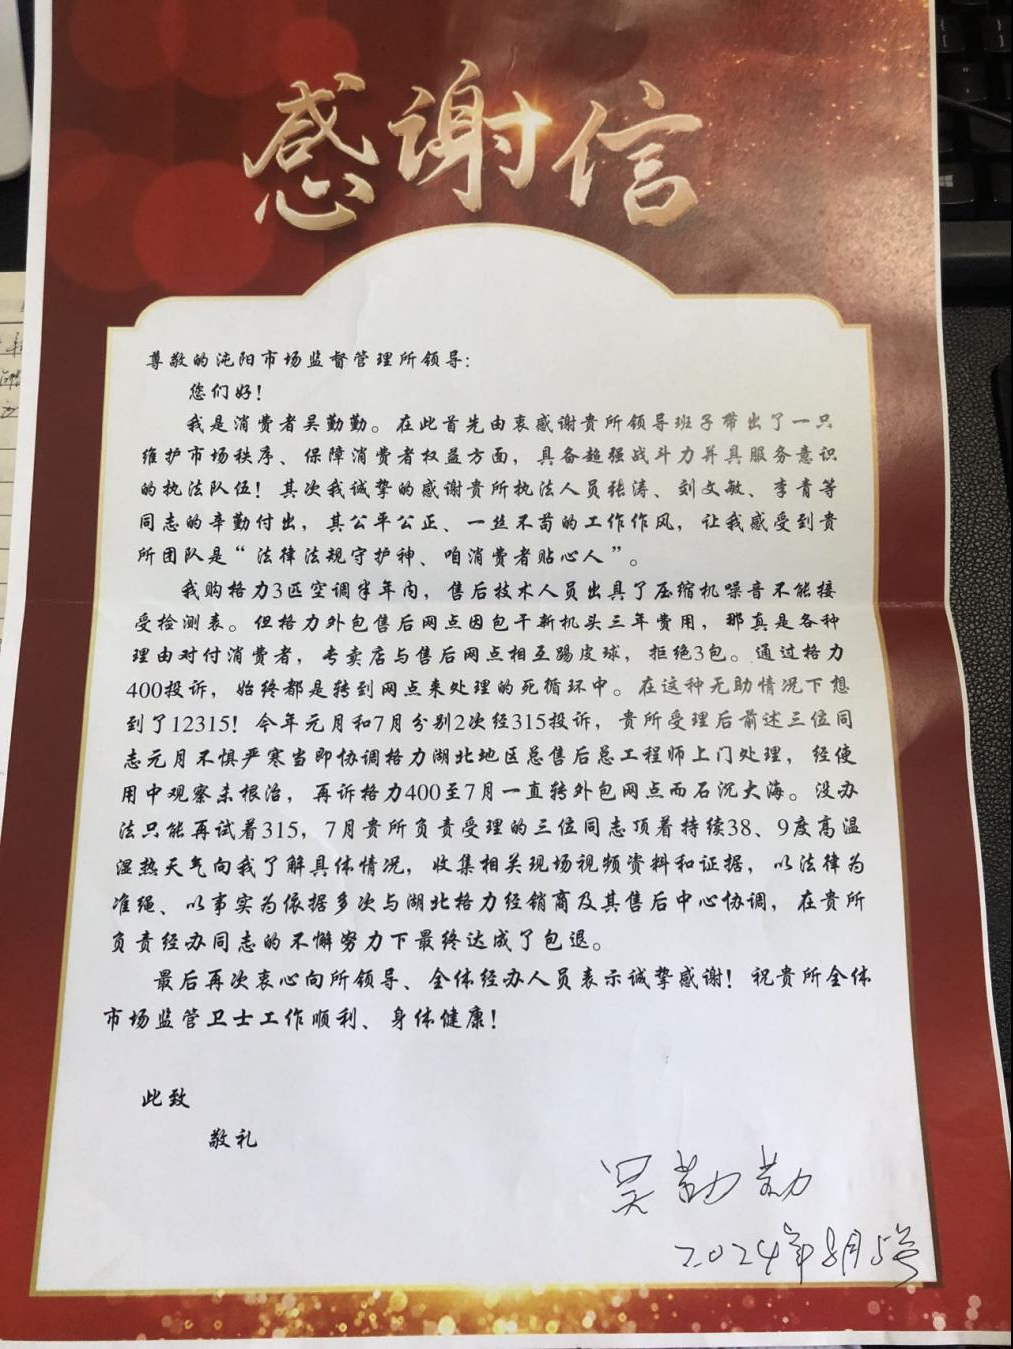 感谢信
尊敬的沌阳市场监督管理所领导:
您们好!
我是消费者吴勤勤。在此首先由衷感谢贵所领导班子带出了一只
维护市场秩序、保障消费者权益方面,具备超强战斗力并具服务意识
的执法队伍!其次我诚挚的感谢贵所执法人员张涛、刘文敏、李青等
同志的辛勤付出,其公平公正、一丝不苟的工作作风,让我感受到贵
所团队是“法律法规守护神、咱消费者贴心人”。
我购格力3匹空调半年内,售后技术人员出具了压缩机噪音不能接
受检测表。但格力外包售后网点因包干新机头三年费用,那真是各种
理由对付消费者,专卖店与售后网点相互踢皮球,拒绝3包。通过格力
400投诉,始终都是转到网点来处理的死循环中。在这种无助情况下想
到了12315!今年元月和7月分别2次经315投诉,贵所受理后前述三位同
志元月不惧严寒当即协调格力湖北地区总售后总工程师上门处理,经使
用中观察未根治,再诉格力400至7月一直转外包网点而石沉大海。没办
法只能再试着315,7月贵所负责受理的三位同志顶着持续38、9度高温
湿热天气向我了解具体情况,收集相关现场视频资料和证据,以法律为
准绳、以事实为依据多次与湖北格力经销商及其售后中心协调,在贵所
负责经办同志的不懈努力下最终达成了包退。
最后再次衷心向所领导、全体经办人员表示诚挚感谢!祝贵所全体
市场监管卫士工作顺利、身体健康!
此致
敬礼
吴勤勤
2024年8月5号